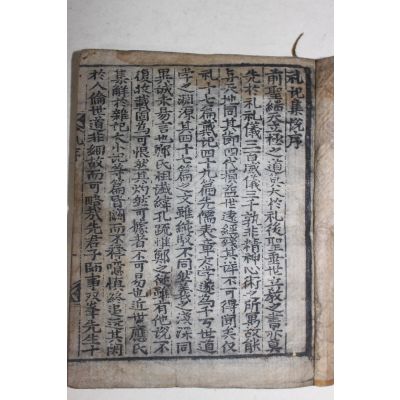 礼記集説序
前聖継天立極之道莫大於礼後聖垂世立教之書亦莫
先於礼礼儀三百威儀三千孰非精神心術之所寓故能
与天地同其節四代損益世遠経残其詳不可得聞矣仪
礼十七篇戴記四十九篇先儒表章庸学遂為千万世道
学之淵源其四十七篇之文雖純駁不同然義之浅深同
異誠未易言也鄭氏祖讖緯孔疏惟鄭之従雖有他説不
復收載固為可恨然其灼然可據者不可易也近世應氏
集解於雑記大小記等篇皆闕而不釋噫慎終追遠其関
於人倫世道非細故而可略哉先君子師事双峯先生十